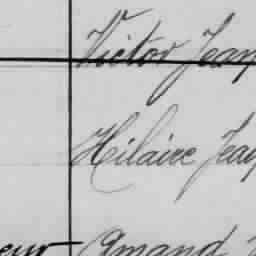 Victor Jean
Hilaire Jean
eur Amand